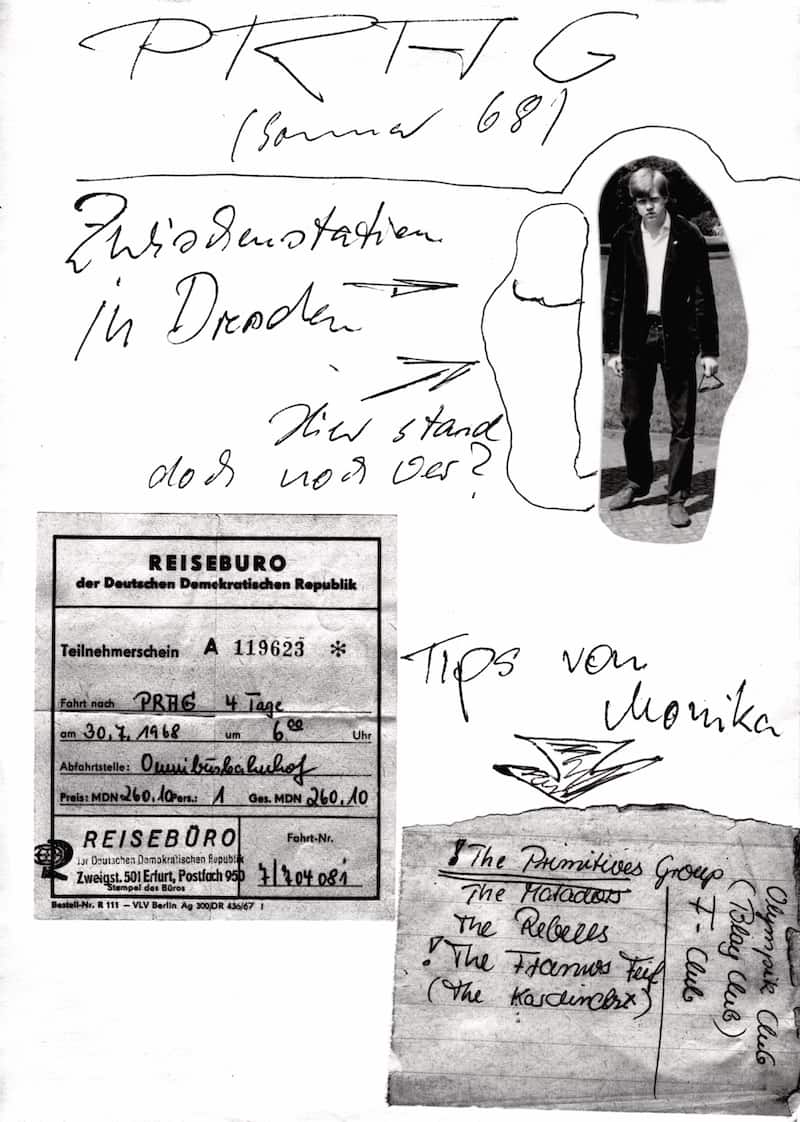 PRAG
(Sommer 68)
Zwischenstation
in Dresden
Hier stand
doch noch wer?
REISEBÜRO
der Deutschen Demokratischen Republik
Teilnehmerschein A 119623 *
Fahrt nach PRAG 4 Tage
am 30.7.1968 um 6⁰⁰ Uhr
Abfahrtstelle: Omnibusbahnhof
Preis: MDN 260.10 Pers.: 1 Ges. MDN 260.10
REISEBÜRO
der Deutschen Demokratischen Republik
Zweigst. 501 Erfurt, Postfach 950
Stempel des Büros
Fahrt-Nr.
7/704081
Bestell-Nr. R 111 – VLV Berlin Ag 300/DR 436/67 I
Tips von
Monika
! The Primitives Group
The Matadors
The Rebells
! The
(The
F-Club
(Play Club)
Olympik Club